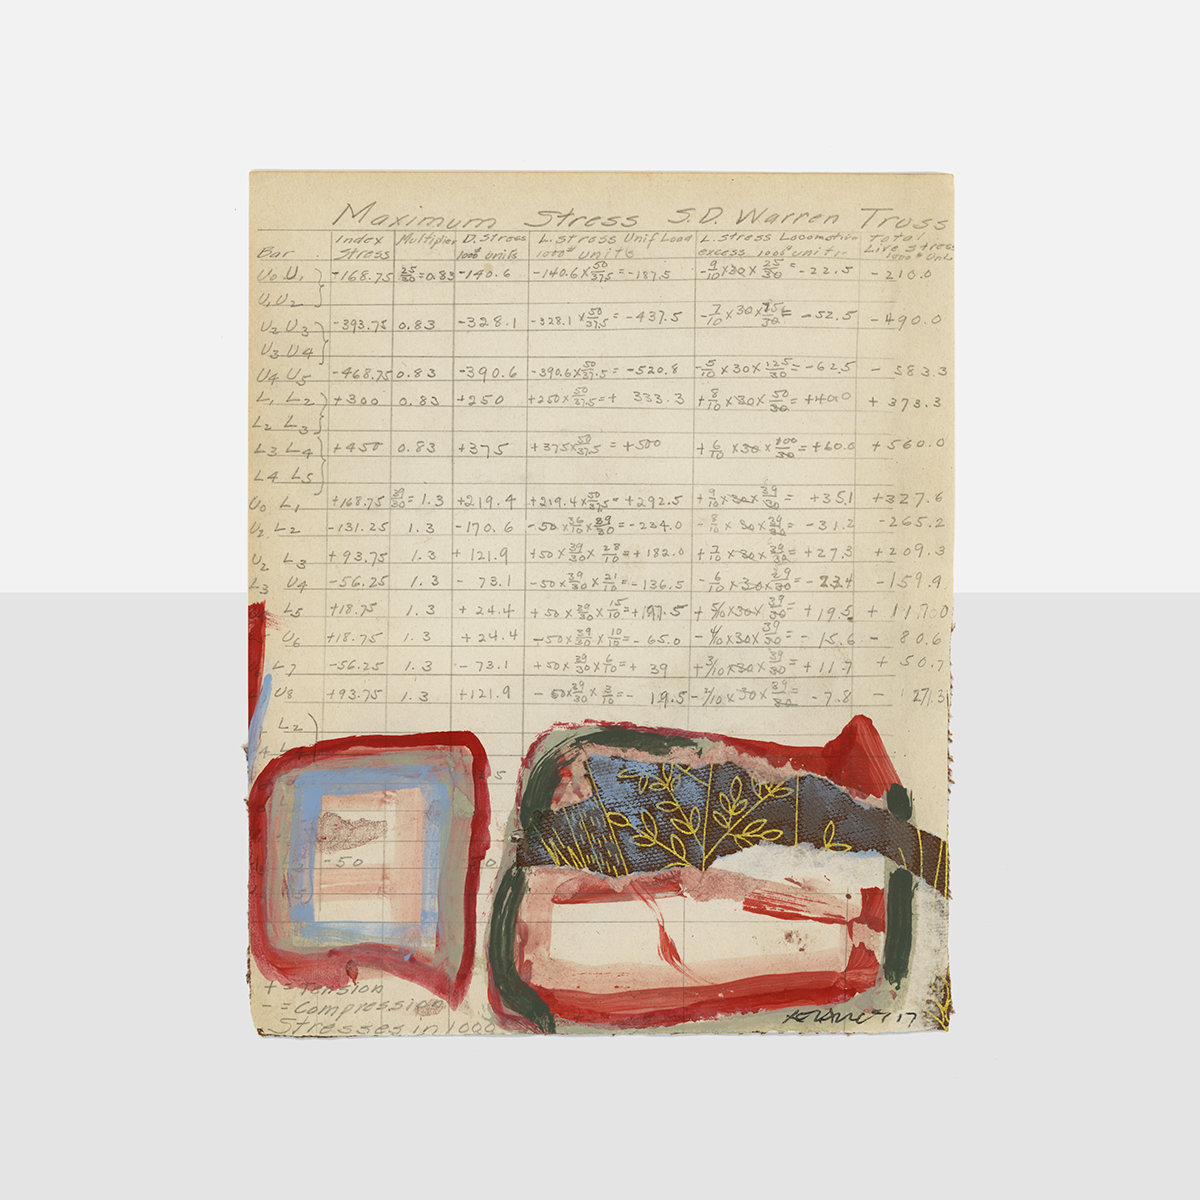 Maximum Stress S.D. Warren Truss
Bar Index Stress Multiplier D. Stress 1000# units L. stress Unif Load 1000# units L. stress Locomotive excess 1000# units Total Live Stress 1000# Units
U0 U1 -168.75 25/30 = 0.83 -140.6 -140.6 x 50/37.5 = -187.5 -9/10 x 30 x 25/30 = -22.5 -210.0
U1 U2
U2 U3 -393.75 0.83 -328.1 -328.1 x 50/37.5 = -437.5 -7/10 x 30 x 75/30 = -52.5 -490.0
U3 U4
U4 U5 -468.75 0.83 -390.6 -390.6 x 50/37.5 = -520.8 -5/10 x 30 x 125/30 = -62.5 - 583.3
L1 L2 +300 0.83 +250 +250 x 50/37.5 = + 333.3 +8/10 x 30 x 50/30 = +40.0 + 373.3
L2 L3
L3 L4 +450 0.83 +375 +375 x 50/37.5 = +500 +6/10 x 30 x 100/30 = +60.0 +560.0
L4 L5
U0 L1 +168.75 39/30 = 1.3 +219.4 +219.4 x 50/37.5 = +292.5 +9/10 x 30 x 39/30 = +35.1 +327.6
U2 L2 -131.25 1.3 -170.6 -50 x 36/10 x 39/30 = -234.0 -8/10 x 30 x 39/30 = -31.2 -265.2
U2 L3 +93.75 1.3 + 121.9 +50 x 39/30 x 28/10 = +182.0 +7/10 x 30 x 39/30 = +27.3 +209.3
L3 U4 -56.25 1.3 - 73.1 -50 x 39/30 x 21/10 = -136.5 -6/10 x 30 x 39/30 = -23.4 -159.9
L5 +18.75 1.3 + 24.4 +50 x 39/30 x 15/10 = +97.5 + 5/10 x 30 x 39/30 = +19.5 + 117.00
U6 +18.75 1.3 +24.4 -50 x 39/30 x 10/10 = -65.0 -4/10 x 30 x 39/30 = - 15.6 - 80.6
L7 -56.25 1.3 - 73.1 +50 x 39/30 x 6/10 = + 39 +3/10 x 30 x 39/30 = +11.7 + 50.7
U8 +93.75 1.3 +121.9 - 50 x 39/30 x 3/10 = - 19.5 -2/10 x 30 x 39/30 = -7.8 - 27.3
L2
5
-50 0
+ = Tension
- = Compression
Stresses in 1000
'17